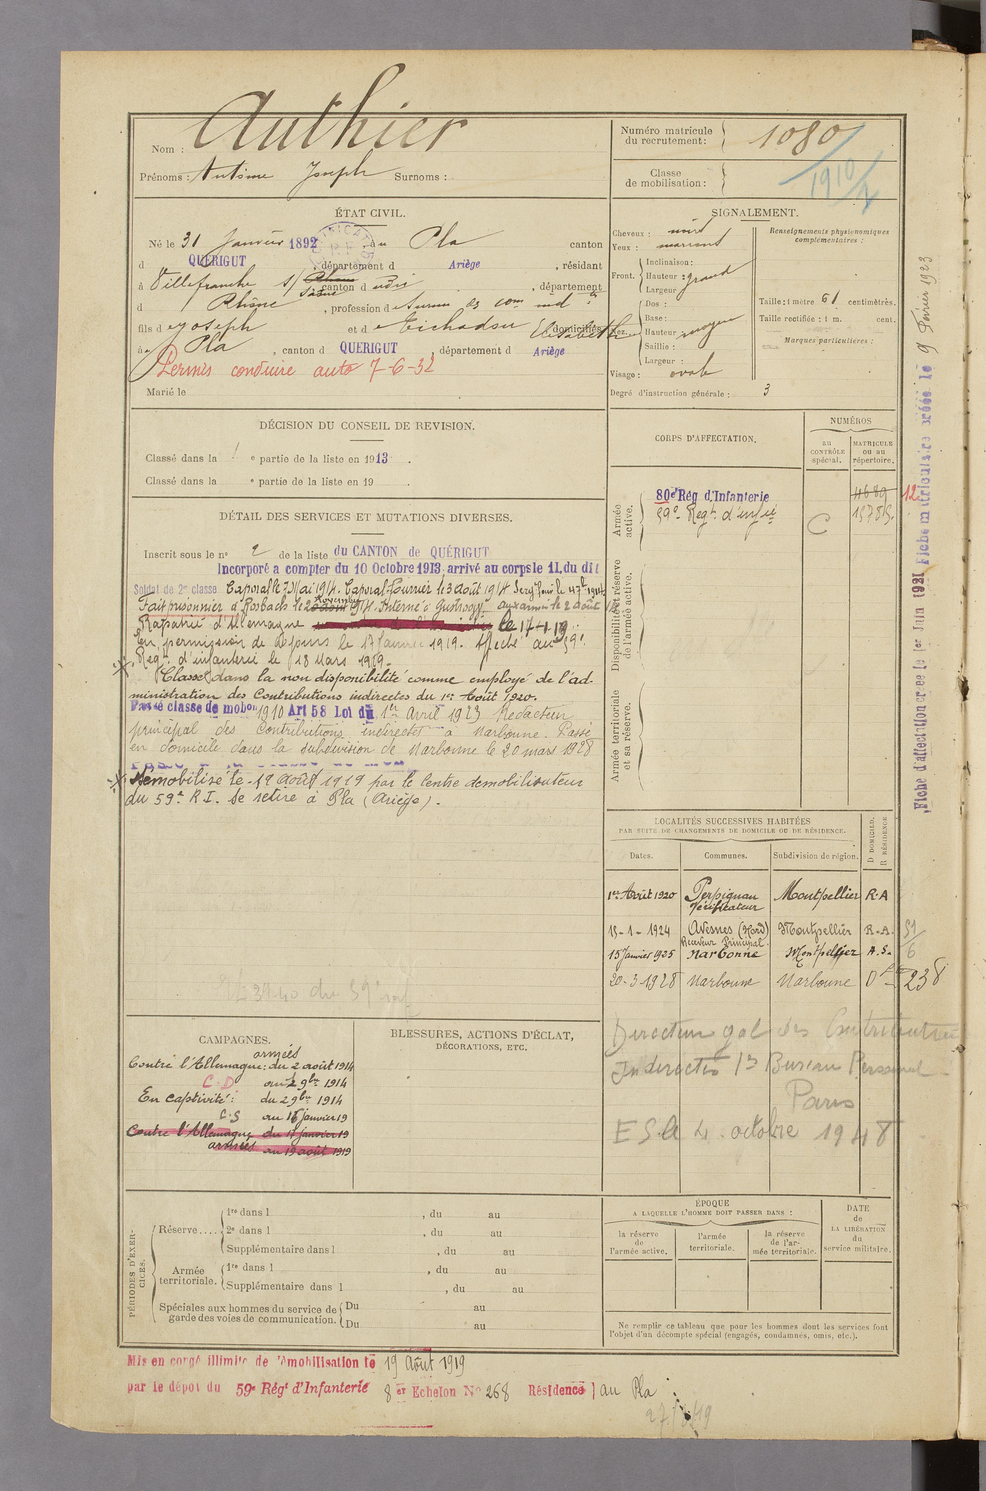 Nom : Authier
Prénoms : Antime Joseph Surnoms :
Numéro matricule du recrutement : 1080
Classe de mobilisation : 1910/2
ÉTAT CIVIL.
Né le 31 Janvier 1892, au Pla canton
d QUERIGUT, département d Ariège, résidant
à Villefranche s/ Saône canton d udis, département
d Rhône, profession d
fils de Joseph et de Tichadou Elisabeth domiciliés
à Pla, canton d QUERIGUT, département d Ariège
Permis conduire auto 7-6-32
Marié le
SIGNALEMENT.
Cheveux : noirs
Yeux : marrons
Front. Inclinaison :
Hauteur : grand
Largeur
Nez. Dos :
Base :
Hauteur moyen
Saillie :
Largeur :
Visage : ovale
Renseignements physionomiques complémentaires :
Taille : 1 mètre 61 centimètres.
Taille rectifiée : 1 m. cent.
Marques particulières :
Degré d'instruction générale : 3
DÉCISION DU CONSEIL DE REVISION.
Classé dans la 1 e partie de la liste en 1913.
Classé dans la e partie de la liste en 19 .
DÉTAIL DES SERVICES ET MUTATIONS DIVERSES.
Inscrit sous le n° 2 de la liste du CANTON de QUÉRIGUT
Incorporé a compter du 10 Octobre 1913, arrivé au corps le 11. du dit
Soldat de 2e classe Caporal le 7 Mai 1914. Caporal Fourrier le 3 août 1914
Fait prisonnier à Rosbach le 2 Novembre 1914. Interné à aux armées le 2 août
Rapatrié d'Allemagne le 17-1-19
En permission de jours le 17 Janvier 1919. Affecté au 59e
Regt. d'infanterie le 18 Mars 1919.
Classé dans la non disponibilité comme employé de l'ad-
ministration des Contributions indirectes du 1er Août 1920.
Passé classe de mobon 1910 Art 58 Loi du 1er Avril 1923 Rédacteur
principal des Contributions indirectes à Narbonne. Passé
en domicile dans la subdivision de Narbonne le 20 mars 1928
Démobilisé le 19 août 1919 par le Centre démobilisateur
du 59e R I. Se retire à Pla (Ariège).
CORPS D'AFFECTATION.
NUMÉROS
au CONTRÔLE spécial.
MATRICULE ou au répertoire.
Armée active.
80e Rég d'Infanterie 4689 12
59e Regt. d'infie C 15785.
Disponibilité et réserve de l'armée active.
Armée territoriale et sa réserve.
Fiche d'affectation créée le 1er Juin 1921 Fiche matriculaire créée le 9 Février 1923
LOCALITÉS SUCCESSIVES HABITÉES
PAR SUITE DE CHANGEMENTS DE DOMICILE OU DE RÉSIDENCE.
Dates. Communes. Subdivision de région. D DOMICILE. R RÉSIDENCE
1er Août 1920 Perpignan Vérificateur Montpellier R.A
15-1-1924 Avesnes (Nord) Montpellier R.A. 51
Receveur Principal
15 Janvier 1925 Narbonne Montpellier A.S. 6
20-3-1928 Narbonne Narbonne Dle 238
Directeur gal des Contributions
Indirectes 1er Bureau Personnel
Paris
E S.A 4 octobre 1948
CAMPAGNES.
Contre l'Allemagne : armées du 2 août 1914
C.D. au 2 9bre 1914
En captivité : du 2 9bre 1914
C.S au 16 janvier 19
Contre l'Allemagne du 17 janvier 19
armées au 19 août 1919
BLESSURES, ACTIONS D'ÉCLAT,
DÉCORATIONS, ETC.
PÉRIODES D'EXERCICES.
Réserve..... 1re dans l , du au
2e dans l , du au
Supplémentaire dans l , du au
Armée territoriale. 1re dans l , du au
Supplémentaire dans l , du au
Spéciales aux hommes du service de garde des voies de communication. Du au
Du au
ÉPOQUE
A LAQUELLE L'HOMME DOIT PASSER DANS :
la réserve de l'armée active.
l'armée territoriale.
la réserve de l'armée territoriale.
DATE de LA LIBÉRATION du service militaire.
Ne remplir ce tableau que pour les hommes dont les services font
l'objet d'un décompte spécial (engagés, condamnés, omis, etc.).
Mis en congé illimité de démobilisation le 19 Août 1919
par le dépot du 59e Régt d'Infanterie 8e Echelon N° 268 Résidence au Pla